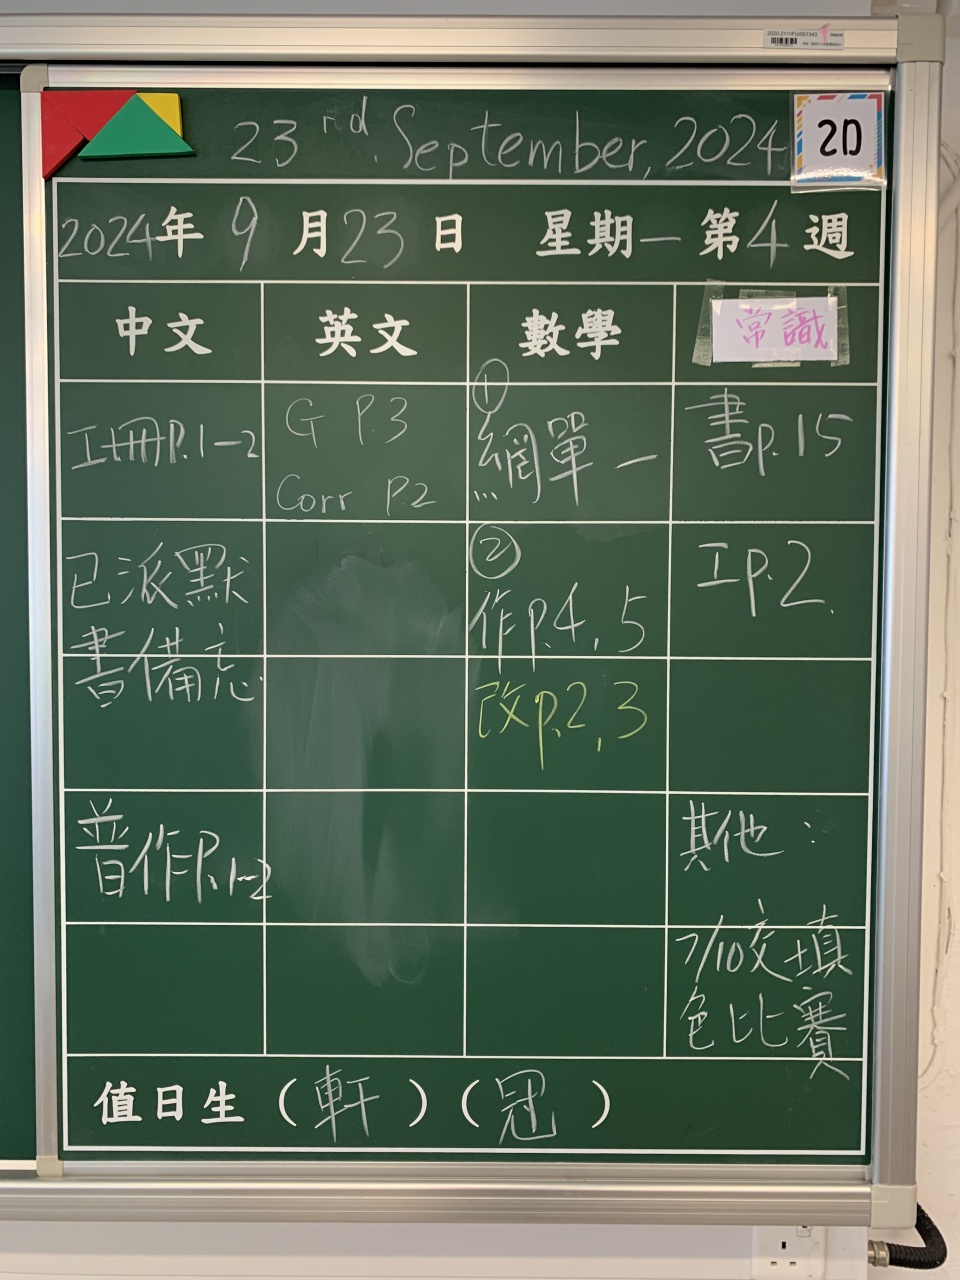 2020-21/1/FU/001340
23rd. September, 2024
2D
2024年 9月23日 星期一 第4週
中文 英文 數學 常識
工冊P.1-2
G P.3
Corr P.2
①
網單一
書p.15
已派默
書備忘
②
作p.4, 5
工p.2.
改p.2, 3
普作P.1-2
其他：
7/10交填
色比賽
值日生（軒）（冠）